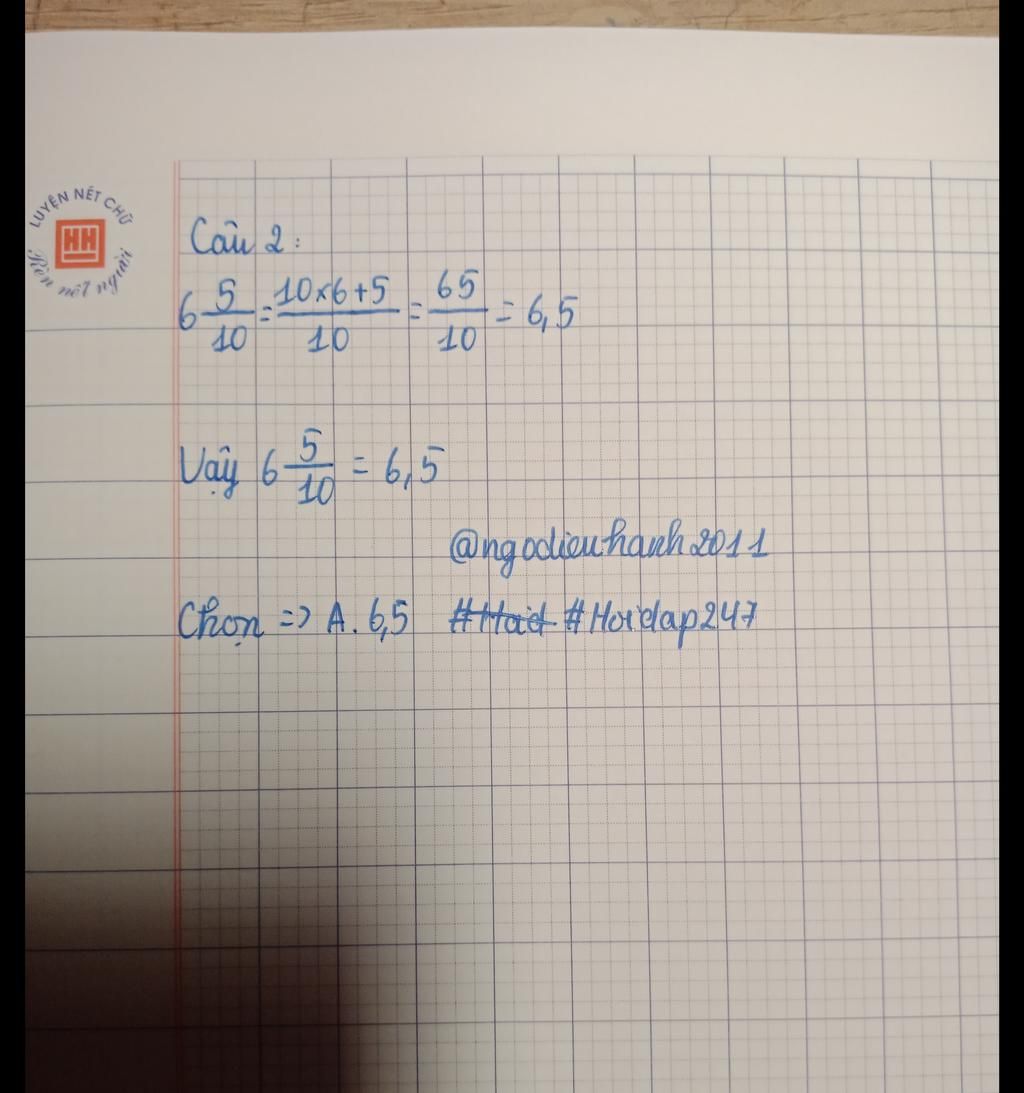 LUYỆN NÉT CHỮ
HH
Rèn nết người
Câu 2:
6 5/10 = 10×6+5/10 = 65/10 = 6,5
Vậy 6 5/10 = 6,5
@ngodieuhanh2011
Chọn => A. 6,5 #Hoid #Hoidap247